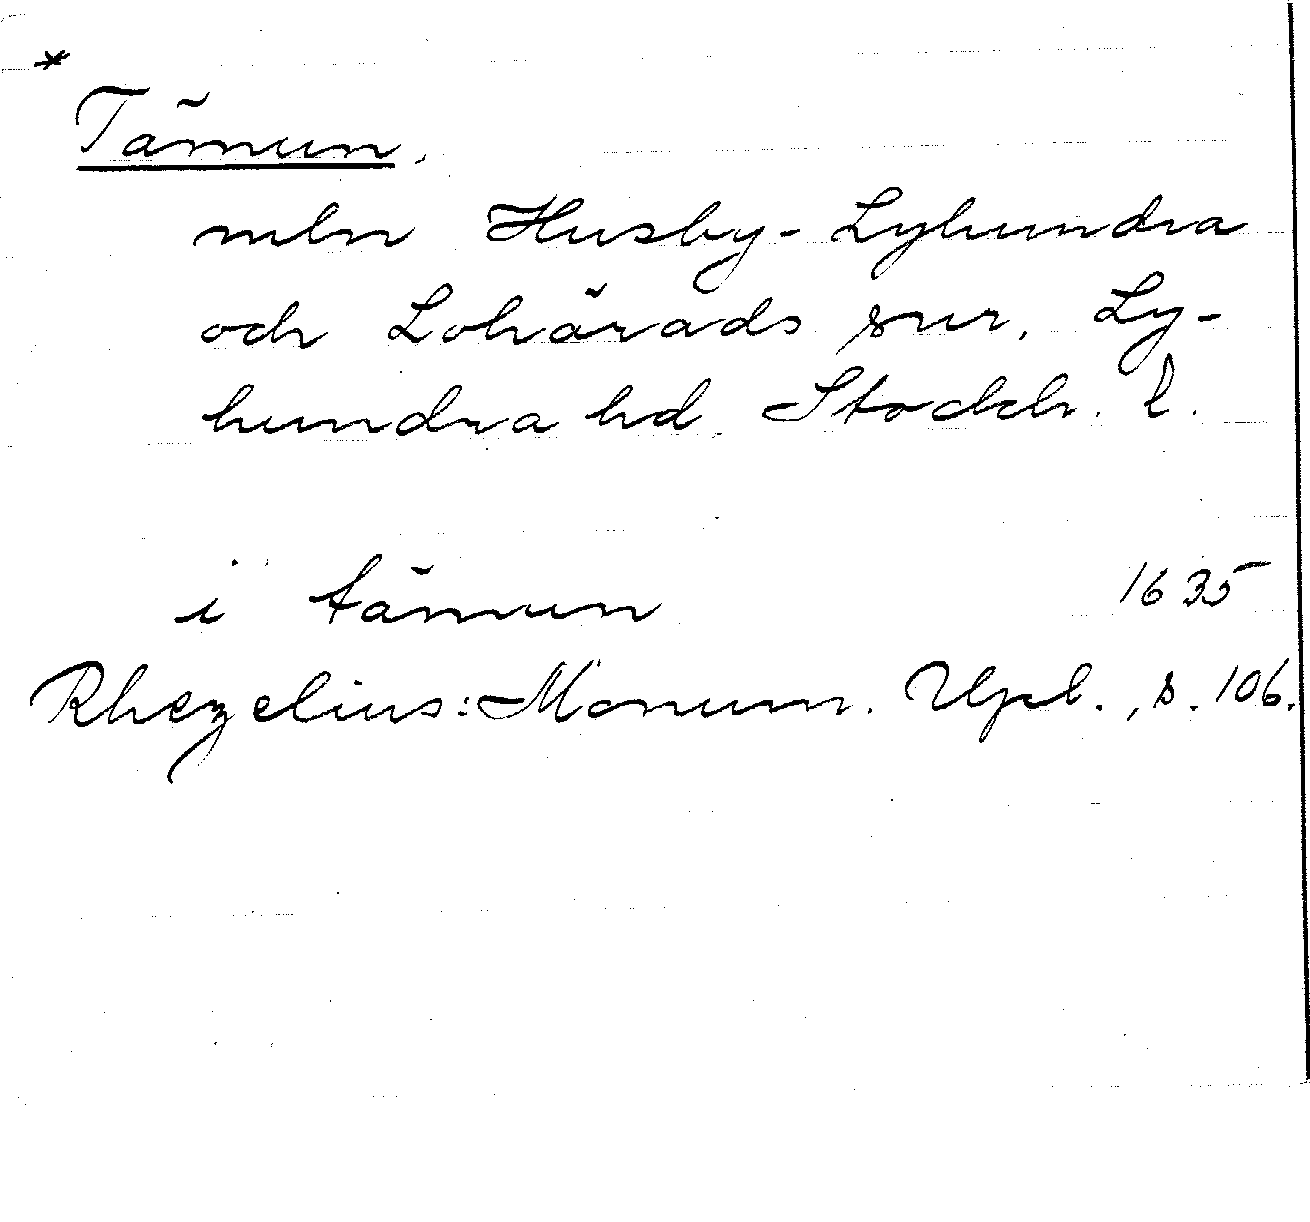 *
Tämun,
mln Husby-Lyhundra
och Lohärads snr, Ly-
hundra hd, Stockh. l.
i tämun 1635
Rhezelius: Monum. Upl., s. 106.